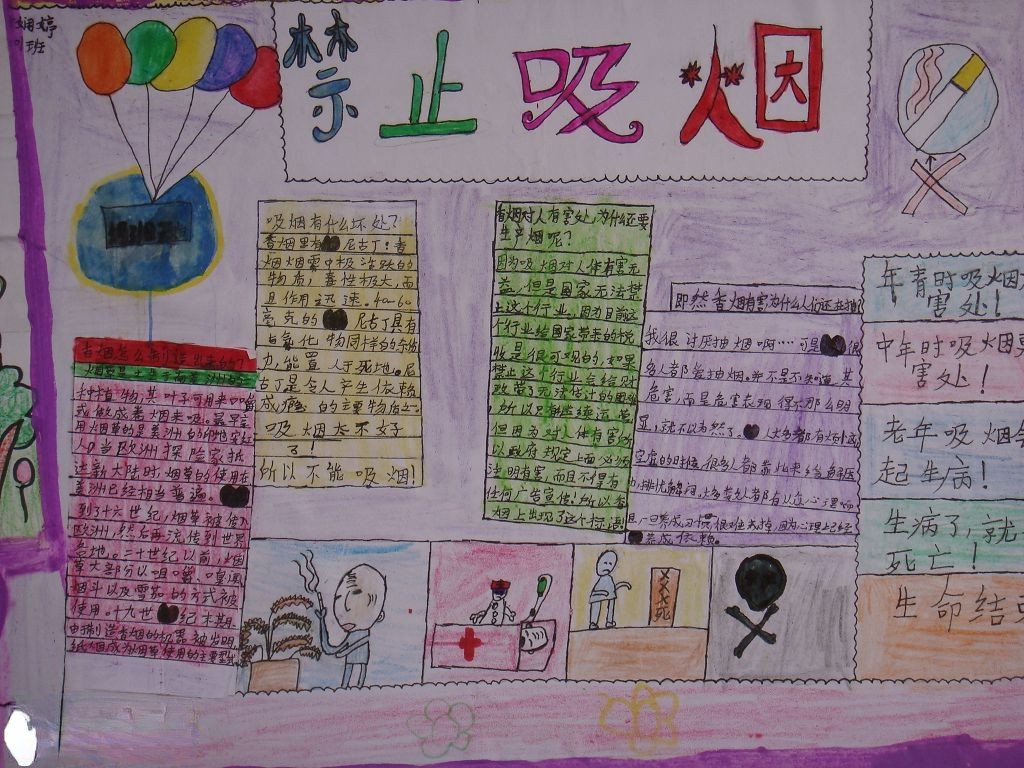 娴婷
班
禁止吸烟
吸烟有什么坏处?
香烟里有 尼古丁:香
烟烟雾中极活跃的
物质,毒性极大,而
且作用迅速。40-60
毫克的 尼古丁具有
与氰化物同样的杀伤
力,能置人于死地。尼
古丁是令人产生依赖
成瘾的主要物质之一
吸烟太不好
了!
所以不能吸烟!
香烟对人有害处,为什么还要
生产烟呢?
因为吸烟对人体有害无
益,但是国家无法禁
止这个行业,因为目前这
个行业给国家带来的税
收是很可观的,如果
禁止这个行业会给财
政带
所以只有继续运营
但因为对人体有害,所
以政府规定上面必须
注明有害,而且不得有
任何广告宣传!所以香
烟上出现了这个标语
即然香烟有害为什么人们还在抽?
我很讨厌抽烟啊…可是 很
多人都爱抽烟。并不是不知道其
危害,而是危害表现得不那么明
显,就不以为然了。
一旦养成习惯很难去掉,因为心理上已经
养成依赖。
香烟怎么制造出来的?
种植物,其叶子可用来咀嚼
或做成卷烟来吸。最早使
用烟草的是美洲的印地安
人。当欧洲探险家抵
达新大陆时烟草的使用在
美洲已经相当普遍。
到了十六世纪,烟草被传入
欧洲,然后再流传到世界
各地。二十世纪以前,烟
草大部分以咀嚼、嗅闻
烟斗以及雪茄的方式被
使用。十九世 纪末期
由于制造香烟的机器被发明
纸烟成为烟草使用的主要型式
年青时吸烟
害处!
中年时吸烟更
害处!
老年吸烟会
起生病!
生病了,就
死亡!
生命结束
XXX死